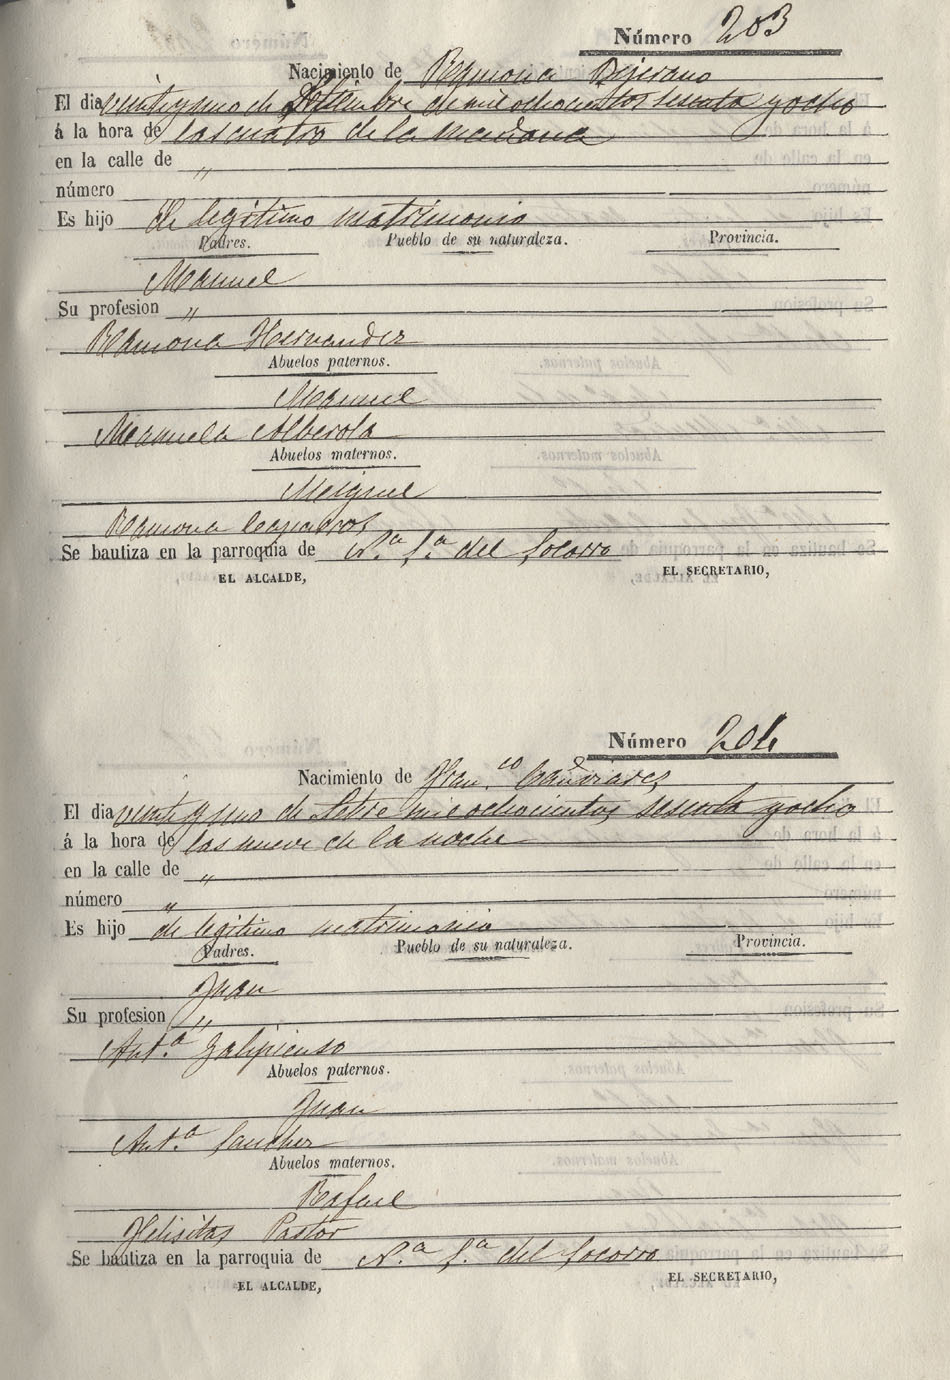 Número 203
Nacimiento de Ramona Bejerano
El dia veinte y uno de Setiembre de mil ochocientos sesenta y ocho
á la hora de las cuatro de la mañana
en la calle de "
número
Es hijo de legítimo matrimonio
Padres. Pueblo de su naturaleza. Provincia.
Manuel
Su profesion "
Ramona Hernandez
Abuelos paternos.
Manuel
Manuela Alberola
Abuelos maternos.
Miguel
Ramona
Se bautiza en la parroquia de N.a S.a del Socorro
EL ALCALDE, EL SECRETARIO,
Número 204
Nacimiento de Fran.co Cañizares
El dia veinte y uno de Setbre mil ochocientos sesenta y ocho
á la hora de las nueve de la noche
en la calle de "
número "
Es hijo de legítimo matrimonio
Padres. Pueblo de su naturaleza. Provincia.
Juan
Su profesion "
Ant.a Galipienso
Abuelos paternos.
Juan
Ant.a Sanchez
Abuelos maternos.
Rafael
Felisitas Pastor
Se bautiza en la parroquia de N.a S.a del Socorro
EL ALCALDE, EL SECRETARIO,